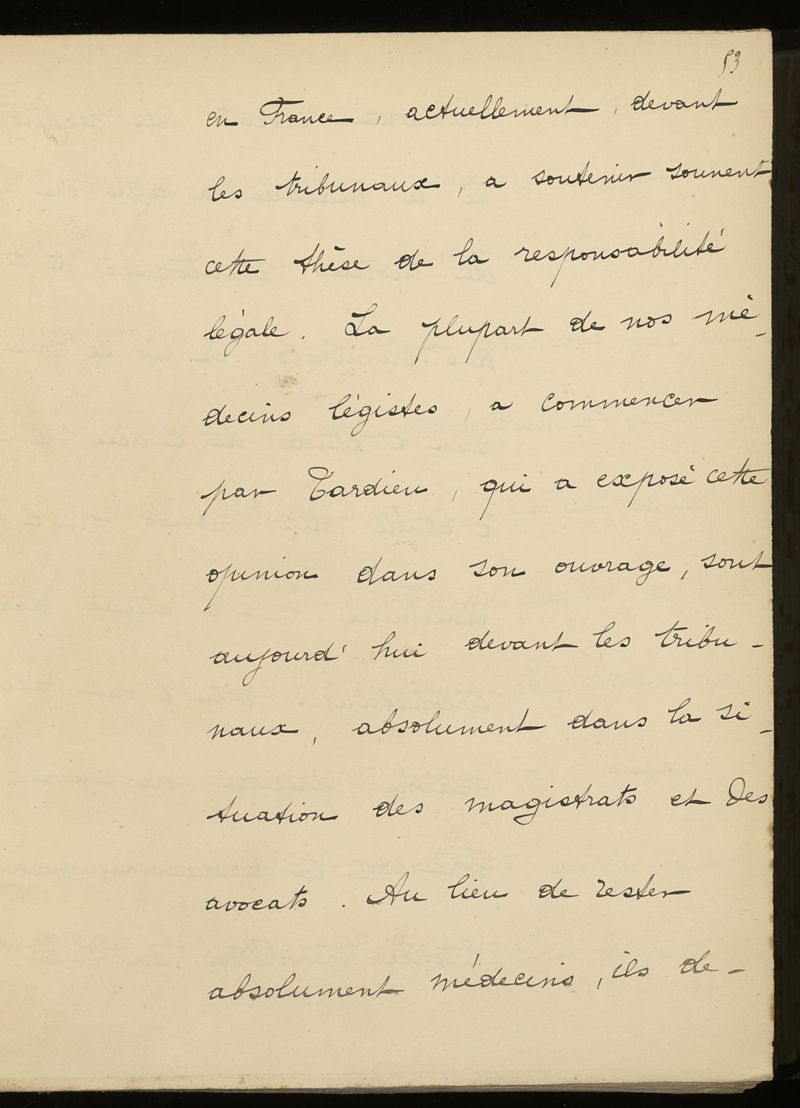 53
en France, actuellement, devant
les tribunaux, a soutenir souvent
cette thèse de la responsabilité
légale. La plupart de nos mé-
decins légistes, a commencer
par Tardieu, qui a exposé cette
opinion dans son ouvrage, sont
aujourd'hui devant les tribu-
naux, absolument dans la si-
tuation des magistrats et des
avocats. Au lieu de rester
absolument médecins, ils de-